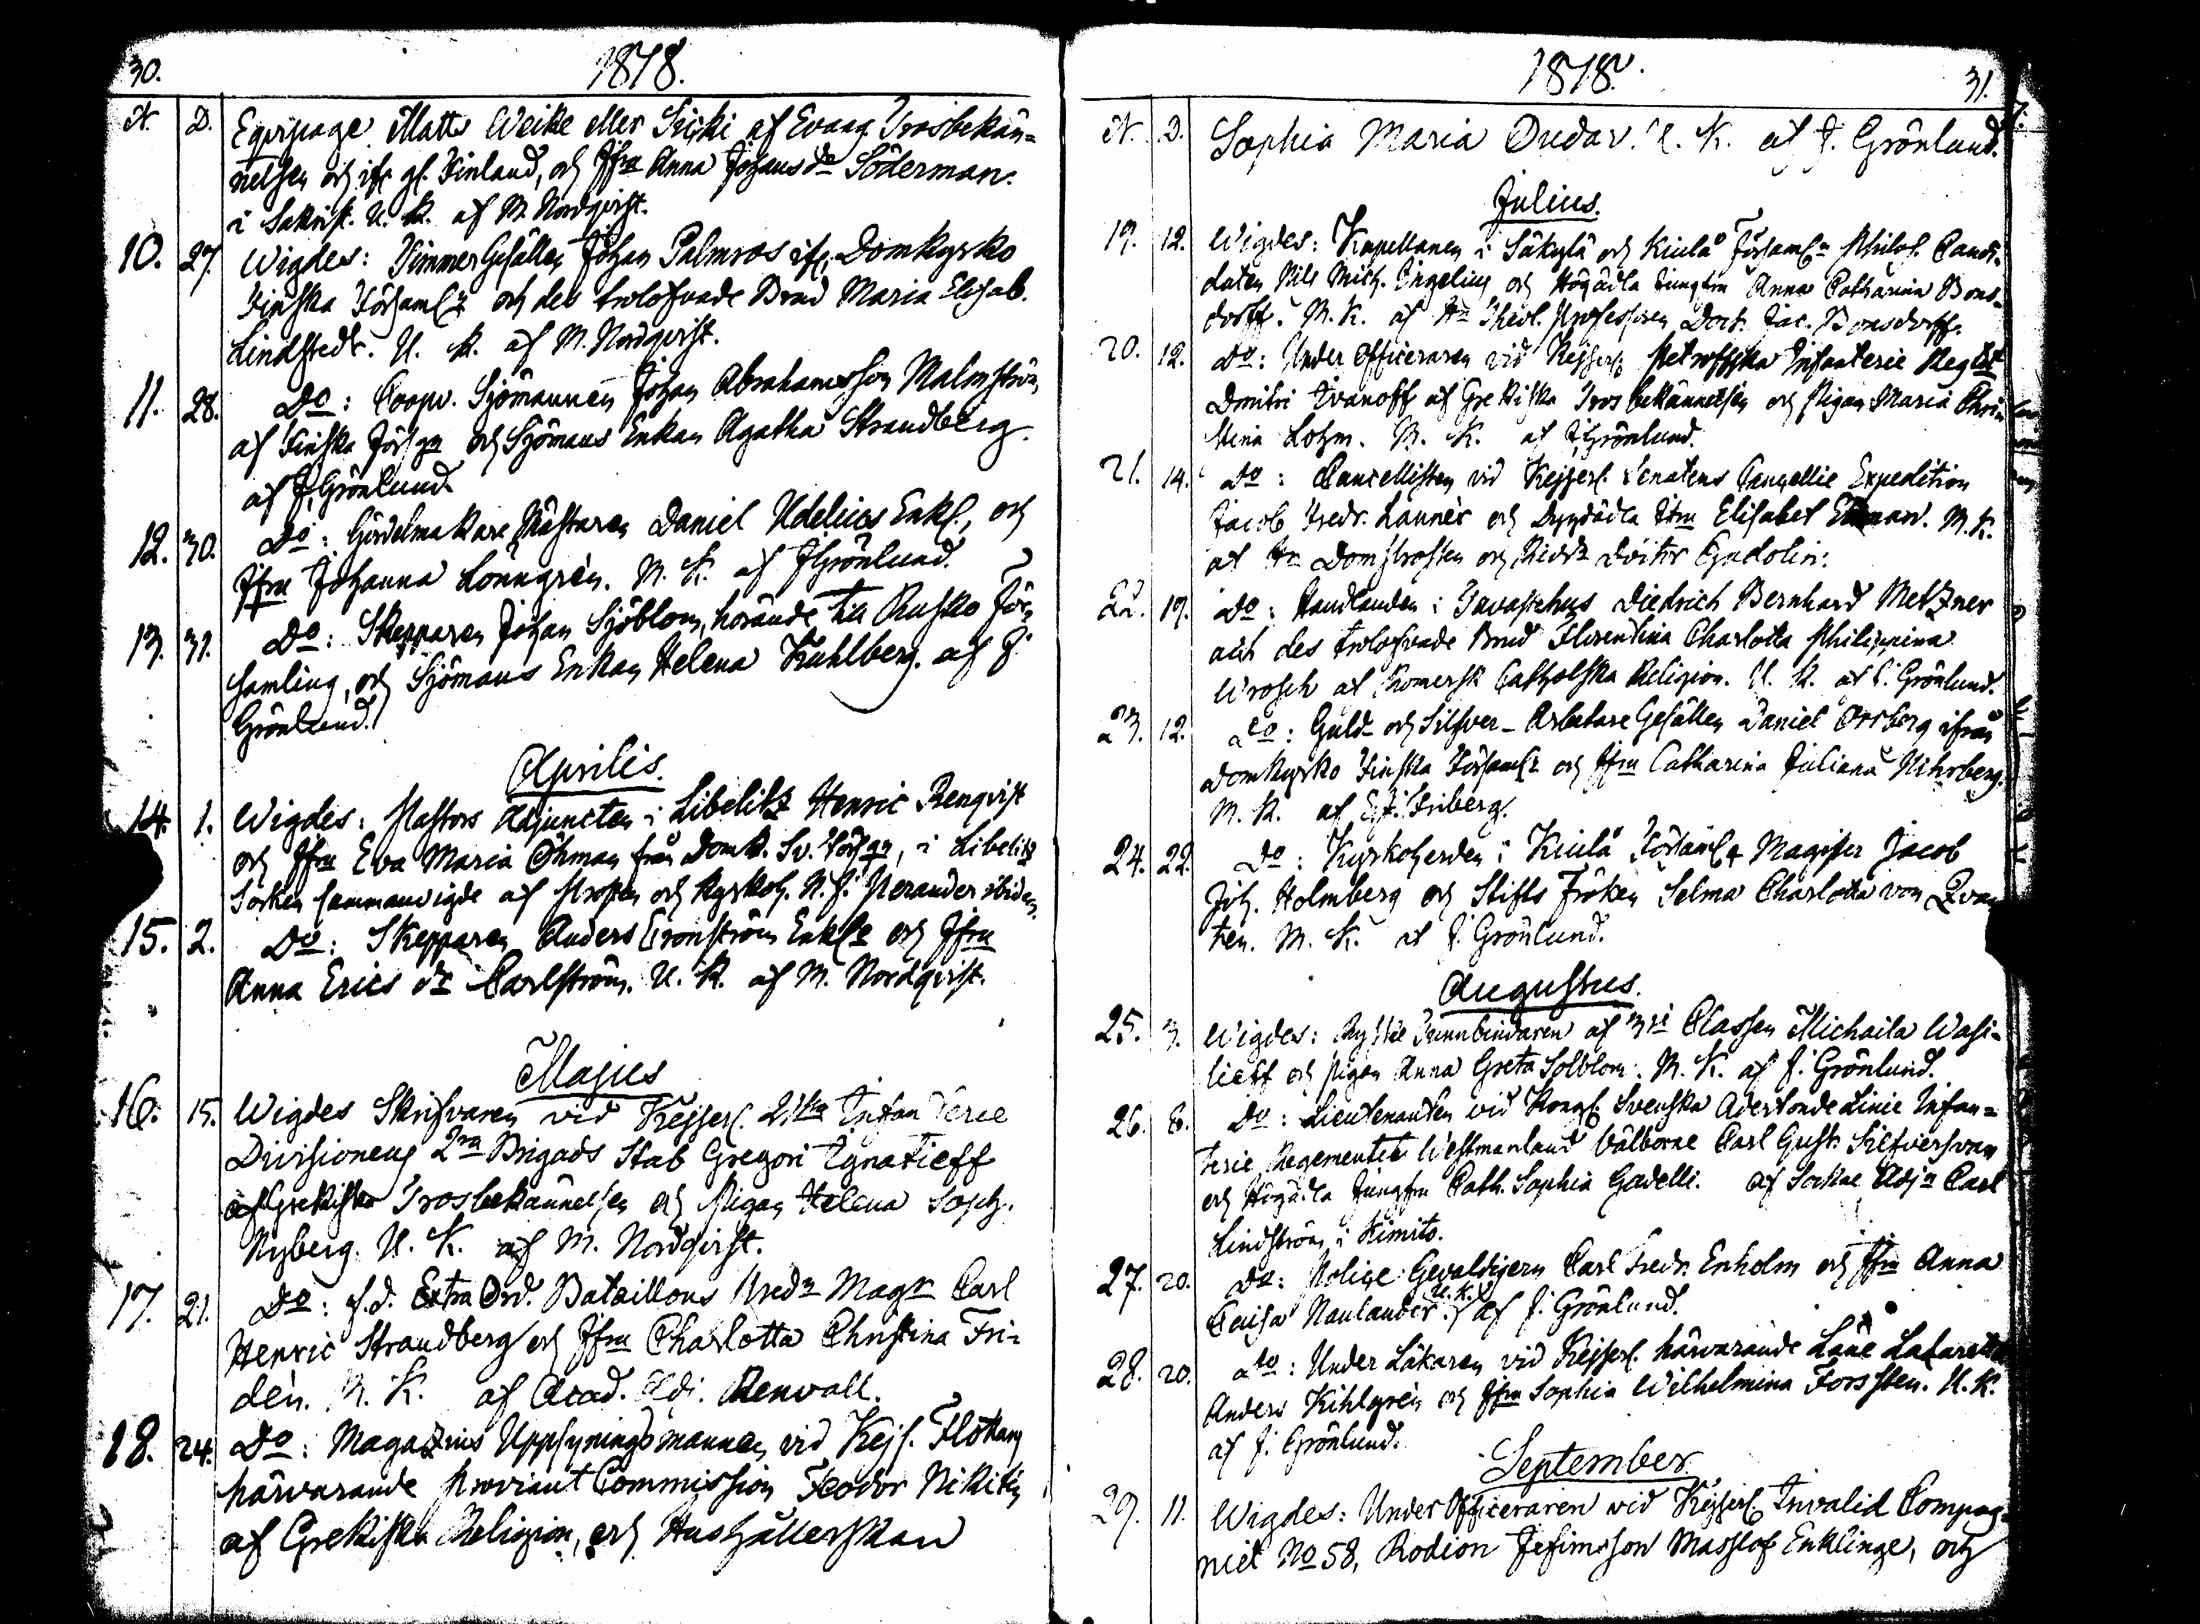 30.
1818.
N. D.
Equipage Matts Weike eller Sicki af Evang. Trosbekän=
nelsen och ifr. gl. Finland, och Jfrn Anna Johans dr Söderman.
i Sakrist. U. K. af M. Nordqvist.
10. 27. Wigdes: Timmer Gesällen Johan Palmros ifr. Domkyrko
Finska Förs. och des trolofvade Brud Maria Elisab.
Lindstedt. U. K. af M. Nordqvist.
11. 28. Do: Coopv. Sjömannen Johan Abrahamsson Malmström
af Finska Förs. och Sjömans Enkan Agatha Strandberg.
af J. Grönlund.
12. 30. Do: Gördelmakare Mästaren Daniel Udelius Enkl., och
Jfrn Johanna Lönngrén. M. K. af J Grönlund.
13. 31. Do: Skepparen Johan Sjöblom, hörande till Rusko För=
samling, och Sjömans Enkan Helena Kuhlberg. af J.
Grönlund.
Aprilis.
14. 1. Wigdes: Pastors Adjuncten i Libelitz Henric Renqvist
och Jfrn Eva Maria Öhman från Domk. Sv. Förs., i Libelitz
Socken sammanvigde af Prosten och Kyrkoh. N. J. Perander ibidem.
15. 2. Do: Skepparen Anders Cronström Enkl. och Jfrn
Anna Erics dr Carlström. U. K. af M. Nordqvist.
Majus
16. 15. Wigdes Skrifvaren vid Kejserl. 21sta Infanterie
Divisionens 2ra Brigads Stab Gregori Ignatieff
af Grekiska Trosbekännelsen och Pigan Helena Soph.
Nyberg. U. K. af M. Nordqvist.
17. 21. Do: f. d. Extra Ord. Bataillons Predn Magr Carl
Henric Strandberg och Jfrn Charlotta Christina Fri=
dén. M. K. af Acad. Adj. Renvall.
18. 24. Do: Magazins Uppsyningsmannen vid Kejs. Flottans
härvarande Proviant Commission Feodor Nikitin
af Grekiska Religion, och Hushållerskan
1818.
31.
N. D. Sophia Maria Oudar. U. K. af J. Grönlund.
Julius.
19. 12. Wigdes: Kapellanen i Säkylä och Kiulå Församln Philos. Candi=
daten Nils Mich. Ingelius och Högädla Jungfru Anna Catharina Bons=
dorff. M. K. af Hr Theol. Professoren Doct. Jac. Bonsdorff.
20. 12. Do: Under Officeraren vid Kejserl. Petroffska Infanterie Regtet
Dmitri Ivanoff af Grekiska Trosbekännelsen och Pigan Maria Chri
stina Lohm. M. K. af J. Grönlund.
21. 14. Do: Cancellisten vid Kejserl. Senatens Cancellie Expedition
Jacob Fredr. Launér och Dygdädla Jfrn Elisabet Ekman. M. K.
af Hr Domprosten och Riddr Doctor Gadolin.
22. 19. Do: Handlanden i Tavastehus Diedrich Bernhard Metzner
och des trolofvade Brud Florentina Charlotta Philippina
Wrosch af Romersk Catholska Religion. U. K. af J. Grönlund.
23. 12. Do: Guld- och Silfver-Arbetare Gesällen Daniel Orsberg ifrån
Domkyrko Finska Förs. och Jfrn Catharina Juliana Nihrberg.
M. K. af Friberg.
24. 22. Do: Kyrkoherden i Kiulå Förs. Magister Jacob
Joh. Holmberg och Stifts Fröken Selma Charlotta von Qvan
ten. M. K. af J. Grönlund.
Augustus.
25. 3. Wigdes: Ryske Tunnbindaren af 3die Classen Michaila Wasi=
lieff och Pigan Anna Greta Solblom. M. K. af J. Grönlund.
26. 8. Do: Lieutenanten vid Kongl. Svenska Adertonde Linie Infan=
terie Regementet Westmanland Välborne Carl Gust. Silfversvan
och Högädla Jungfru Cath. Sophia Gadelli. af Sockne Adjn Carl
Lindström i Kimito.
27. 20. Do: Police Gevaldigern Carl Fredr. Enholm och Jfrn Anna
Caisa Naulander. U. K. af J. Grönlund.
28. 20. Do: Under Läkaren vid Kejserl. härvarande Läne Lazarett
Anders Kihlgrén och Jfrn Sophia Wilhelmina Forsstén. U. K.
af J. Grönlund.
September
29. 11. Wigdes: Under Officeraren vid Kejserl. Invalid Compag=
niet No 58, Rodion Jefimsson Masslof Enklinge, och